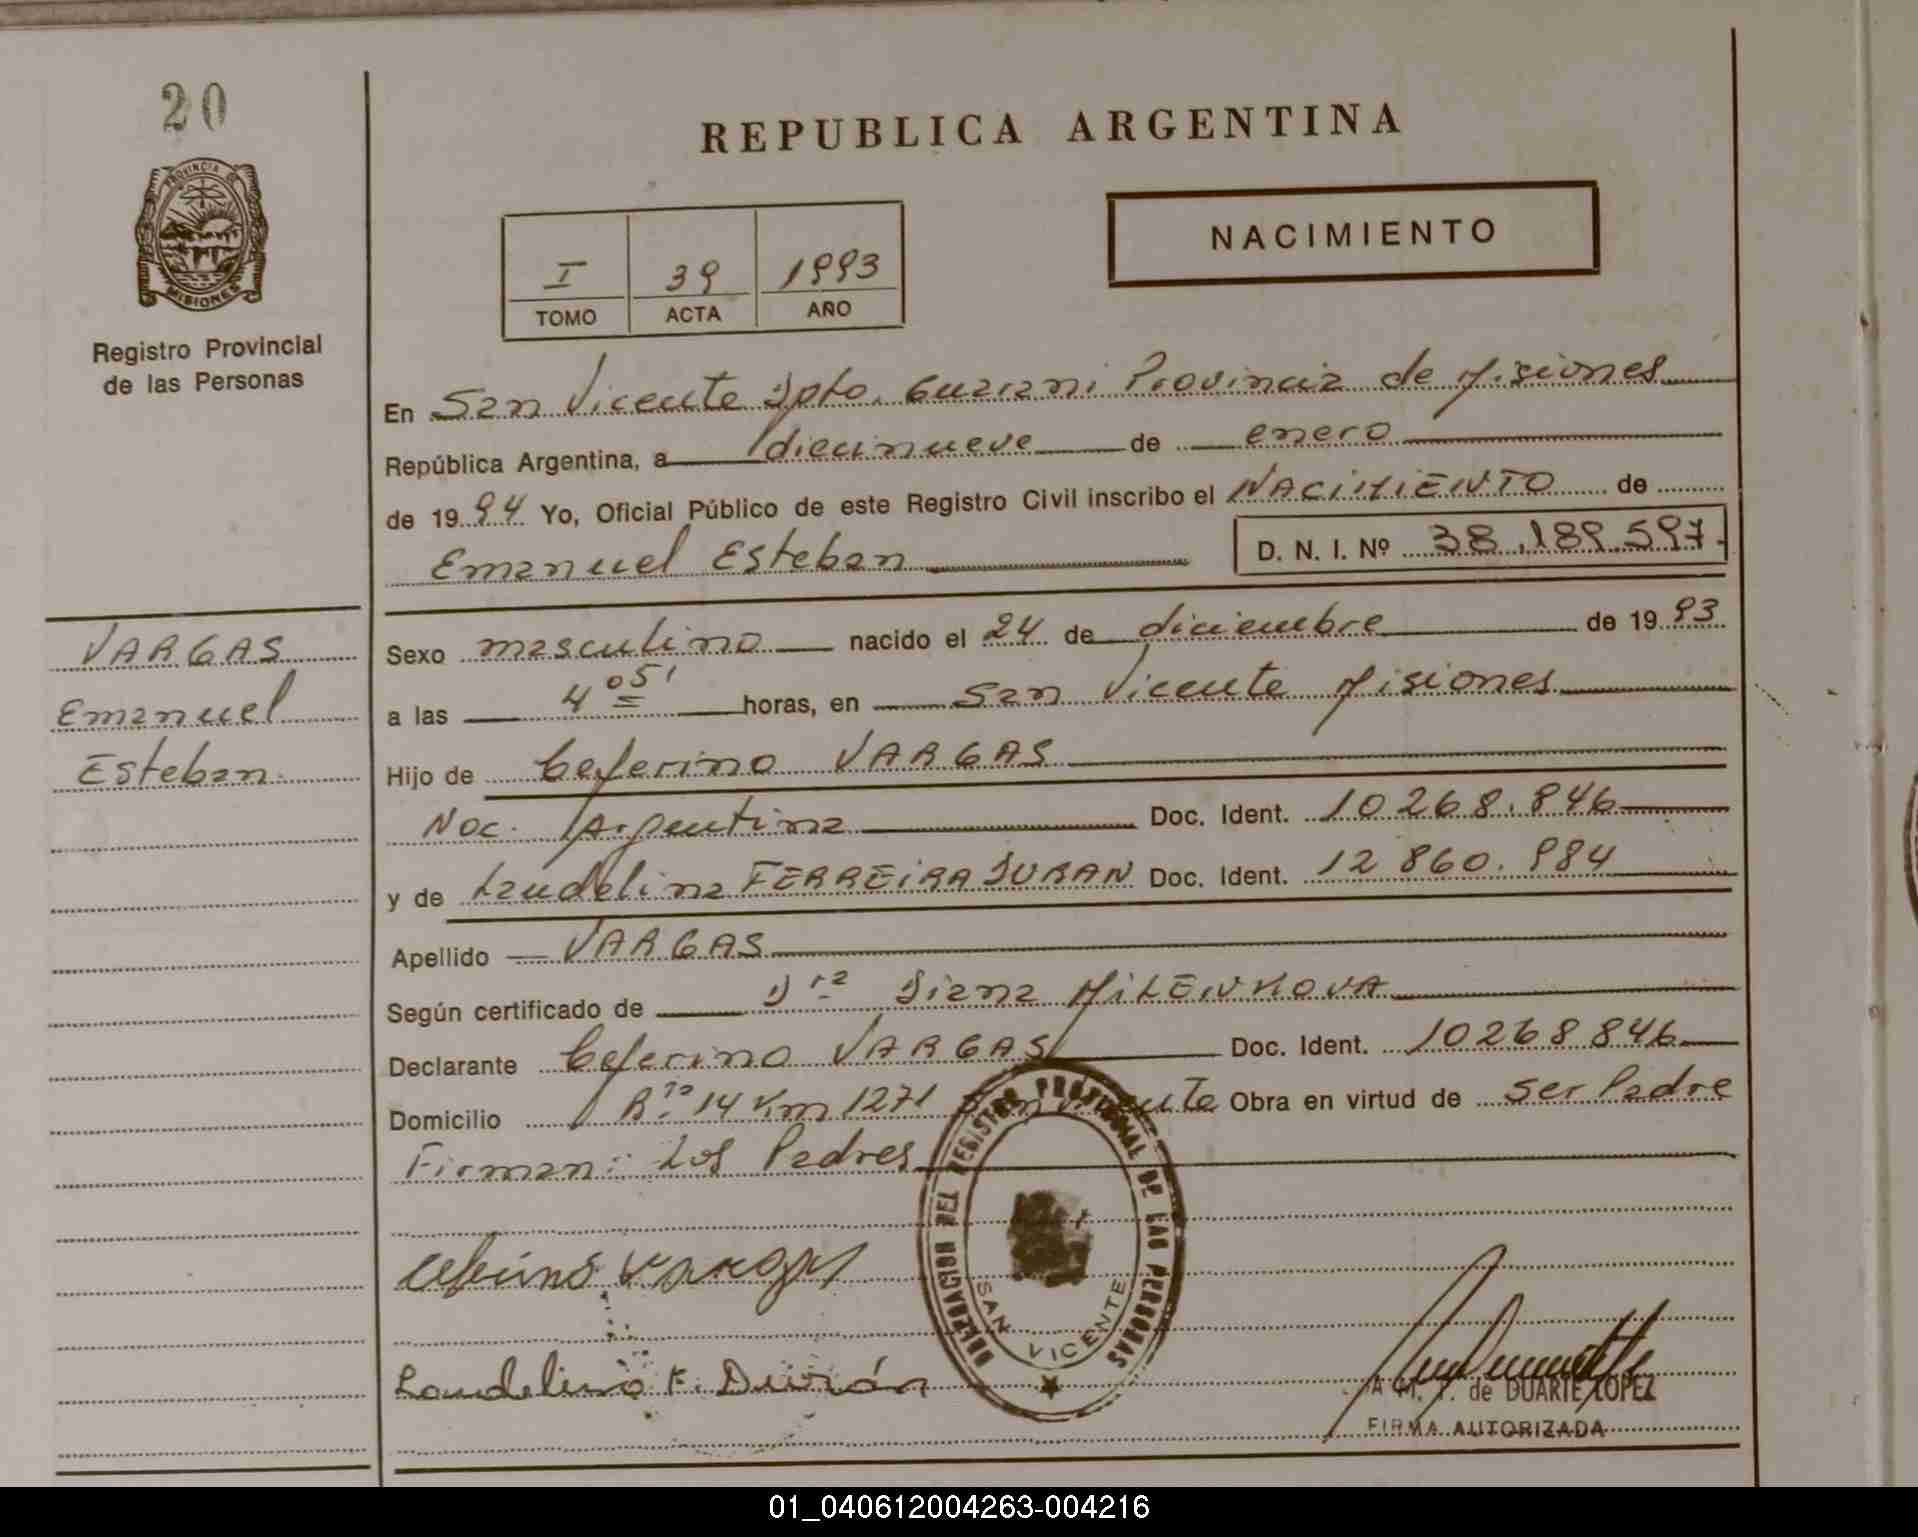 20
PROVINCIA DE
MISIONES
Registro Provincial
de las Personas
VARGAS
Emanuel
Esteban
REPUBLICA ARGENTINA
NACIMIENTO
I 39 1993
TOMO ACTA AÑO
En San Vicente Dpto. Guarani Provincia de Misiones
República Argentina, a diecinueve de enero
de 1994 Yo, Oficial Público de este Registro Civil inscribo el NACIMIENTO de
Emanuel Esteban D. N. I. Nº 38.189.597.
Sexo masculino nacido el 24 de diciembre de 1993
a las 4 05' horas, en San Vicente Misiones
Hijo de Ceferino VARGAS
Nac. Argentina Doc. Ident. 10268.846
y de Laudelina FERREIRA DURAN Doc. Ident. 12860.984
Apellido VARGAS
Según certificado de Dra Diana MILENKOVA
Declarante Ceferino VARGAS Doc. Ident. 10268846
Domicilio Rta 14 Km 1271 San Vicente Obra en virtud de ser Padre
Firman: Los Padres
DELEGACION DEL REGISTRO PROVINCIAL DE LAS PERSONAS
SAN VICENTE
Vargas
Laudelina F. Durán
de DUARTE LOPEZ
FIRMA AUTORIZADA
01_040612004263-004216